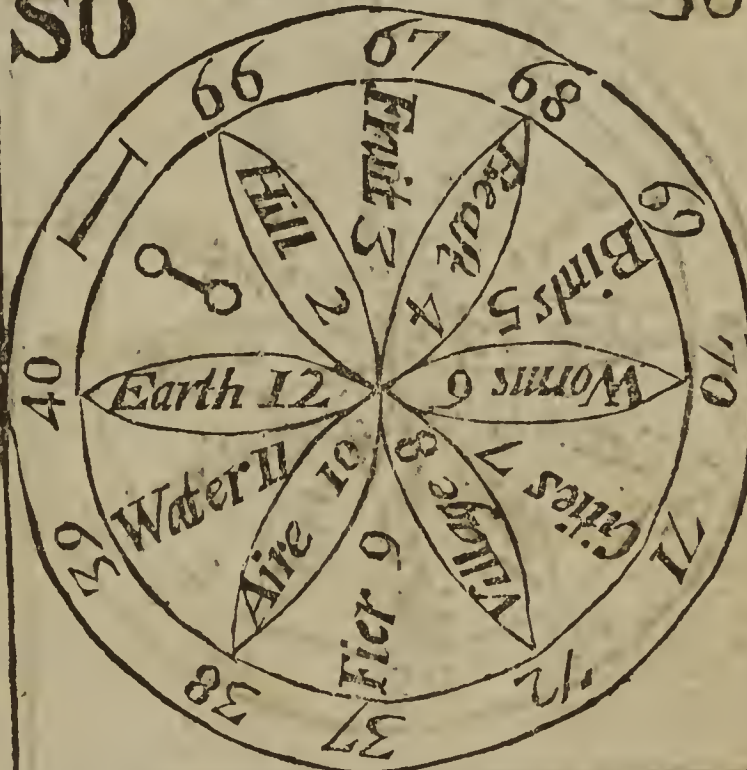 SO
66
67
68
69
70
71
72
37
38
39
40
I
Hill 2
Fruit 3
Beast 4
Birds 5
Worms 6
Citties 7
Village 8
Fier 9
Aire 10
Water 11
Earth 12